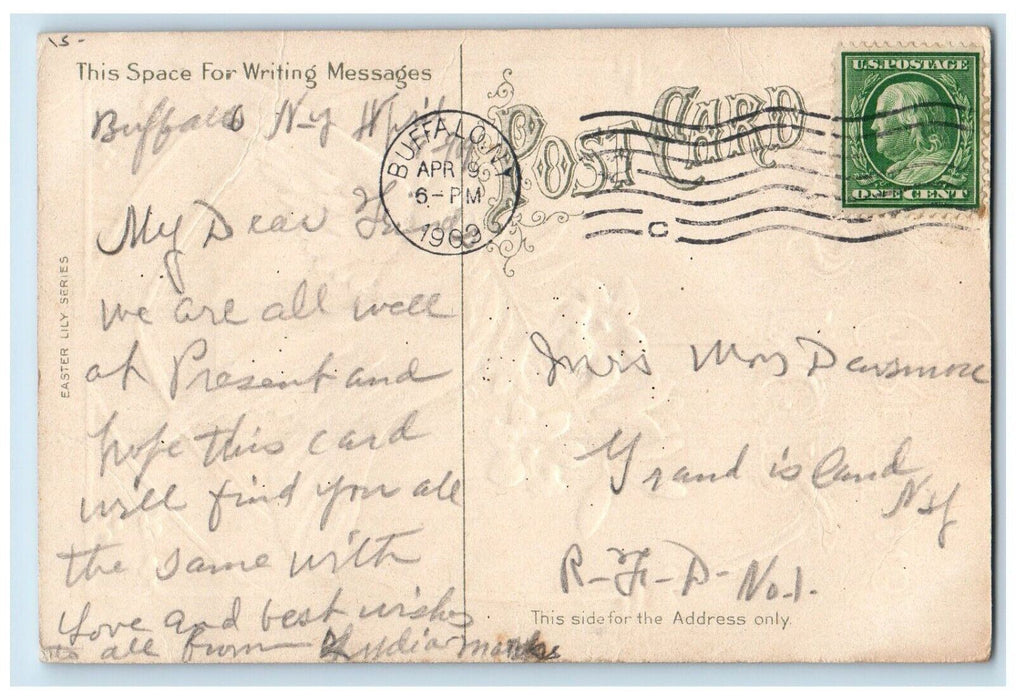 15-
This Space For Writing Messages
Buffalo N-y
My Dear Friend
we are all well
at Present and
hope this card
will find you all
the same with
Love and best wishes
to all from Lydia
EASTER LILY SERIES
BUFFALO, N.Y.
APR 9
6-PM
1909
C
POST CARD
U.S. POSTAGE
ONE CENT
Mrs May Densmore
Grand island
N.y
R-F-D-No.1.
This side for the Address only.